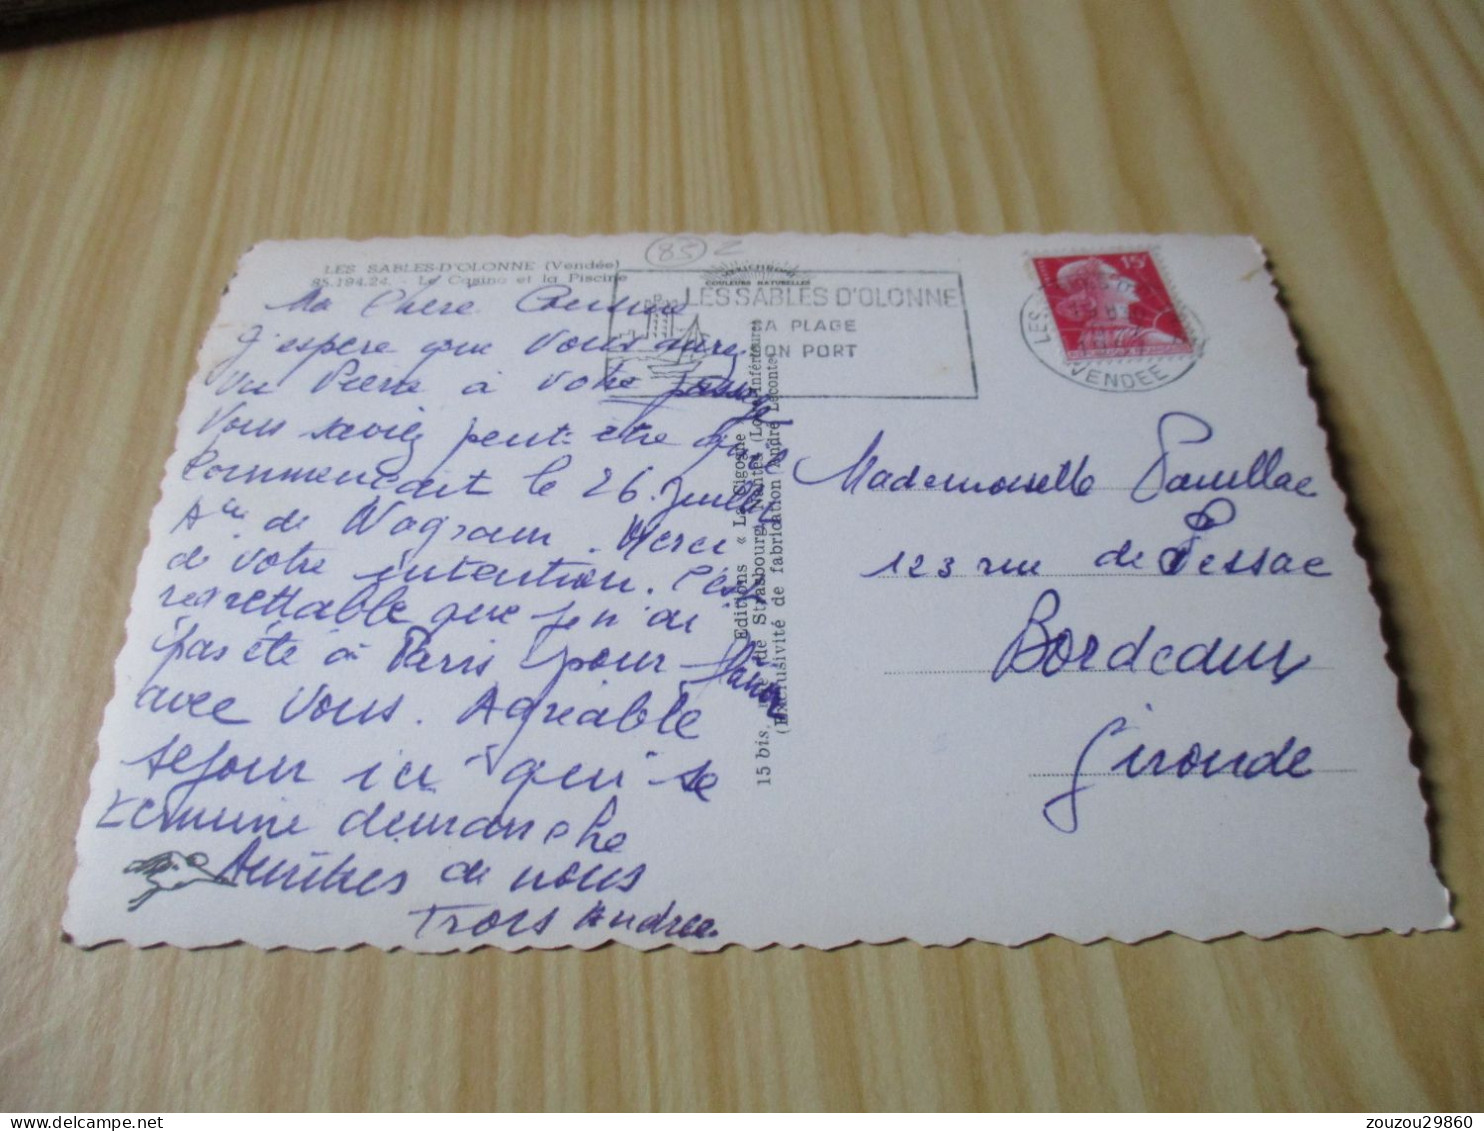 LES SABLES-D'OLONNE (Vendée)
85.194.24. - Le Casino et la Piscine
85
COULEURS NATURELLES
LES SABLES D'OLONNE
SA PLAGE
SON PORT
15F
VENDEE
Ma Chère Cousine
J'espère que vous aurez
vu Pierre à votre passage
Vous saviez peut-être que
commencait le 26 Juillet
Ave de Wagram. Merci
de votre intention. C'est
regrettable que je n'ai
pas été à Paris pour
avec vous. Agréable
séjour ici qui se
termine dimanche
Amitiés de nous
Trois Andrée.
Editions « La Cigogne »
15 bis, rue de Strasbourg, Nantes (Loire-Inférieure)
(Exclusivité de fabrication André Leconte)
Mademoiselle Pauillac
123 rue de Pessac
Bordeaux
Gironde
zouzou29860